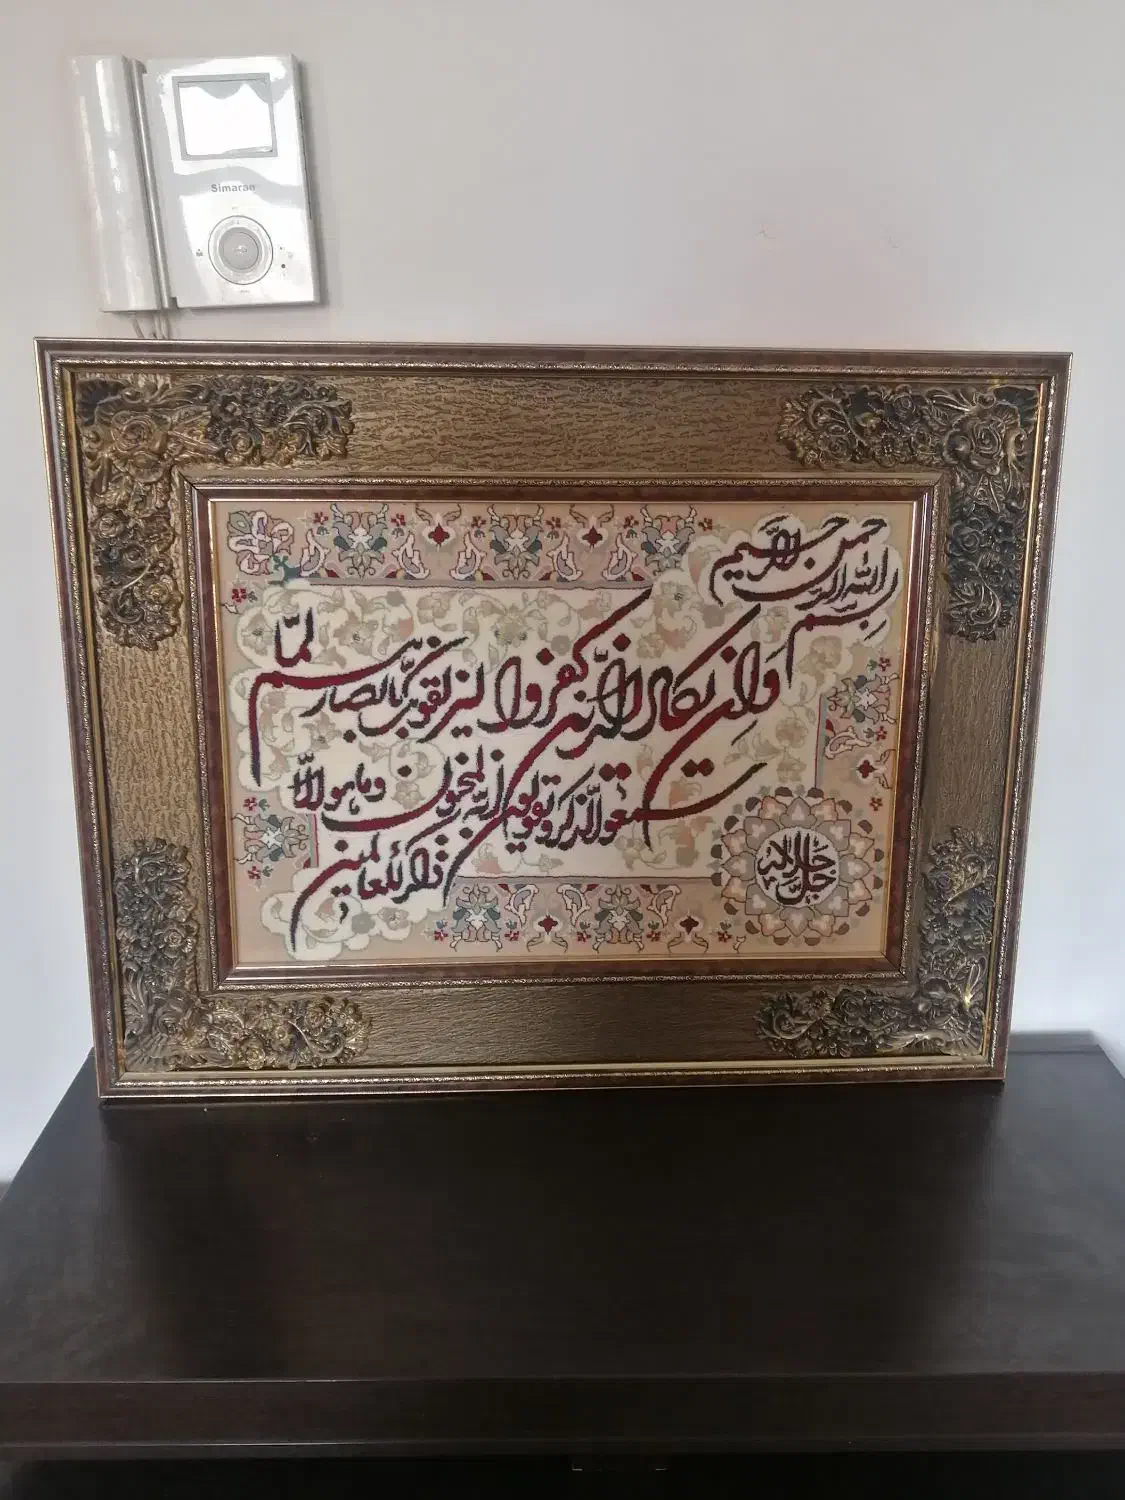 Simaran
بسم الله الرحمن الرحیم
وان یکاد الذین کفروا لیزلقونک بابصارهم لما
سمعوا الذکر و یقولون انه لمجنون وما هو الا
ذکر للعالمین
جل جلاله